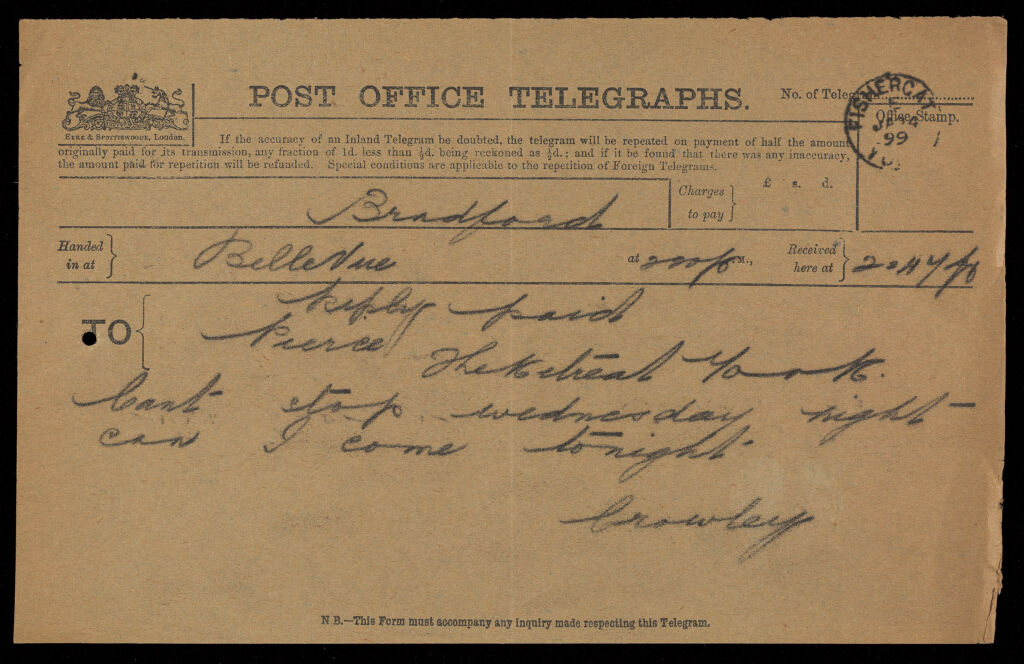 POST OFFICE TELEGRAPHS.
No. of Telegram
Office Stamp.
FISHERGAT
99
EYRE & SPOTTISWOODE, London.
If the accuracy of an Inland Telegram be doubted, the telegram will be repeated on payment of half the amount
originally paid for its transmission, any fraction of 1d. less than ½d. being reckoned as ½d.; and if it be found that there was any inaccuracy,
the amount paid for repetition will be refunded. Special conditions are applicable to the repetition of Foreign Telegrams.
Charges to pay } £ s. d.
Bradford
Handed in at } Belle Vue at 2.00 p M., Received here at } 2.47 p
TO { Reply paid
Pierce The Retreat York.
Cant stop wednesday night
can I come tonight
Crowley
N.B.—This Form must accompany any inquiry made respecting this Telegram.